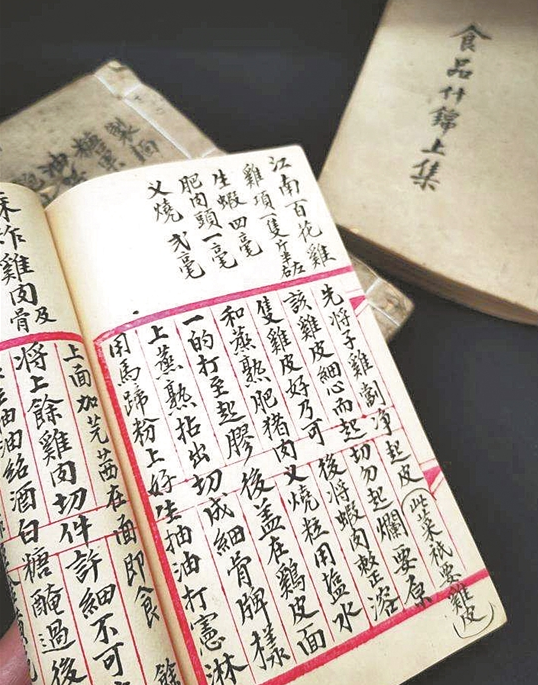 食品什錦上集
江南百花雞
雞項一隻斤半左
生蝦四毫
肥肉頭一毫
叉燒弍毫
先將子雞劏净起皮（此菜祇要雞皮）
該雞皮細心而起切勿起爛要原
隻雞皮好乃可後將蝦肉整溶
和蒸熟肥猪肉叉燒粒用塩水
一的打至起膠後盖在鷄皮面
上蒸熟拈出切成細骨牌樣
用馬蹄粉上好生抽油打憲淋
上面加芫茜在面即食
將上餘雞肉切件許細不可
抽油紹酒白糖醃過後
炸雞肉及骨